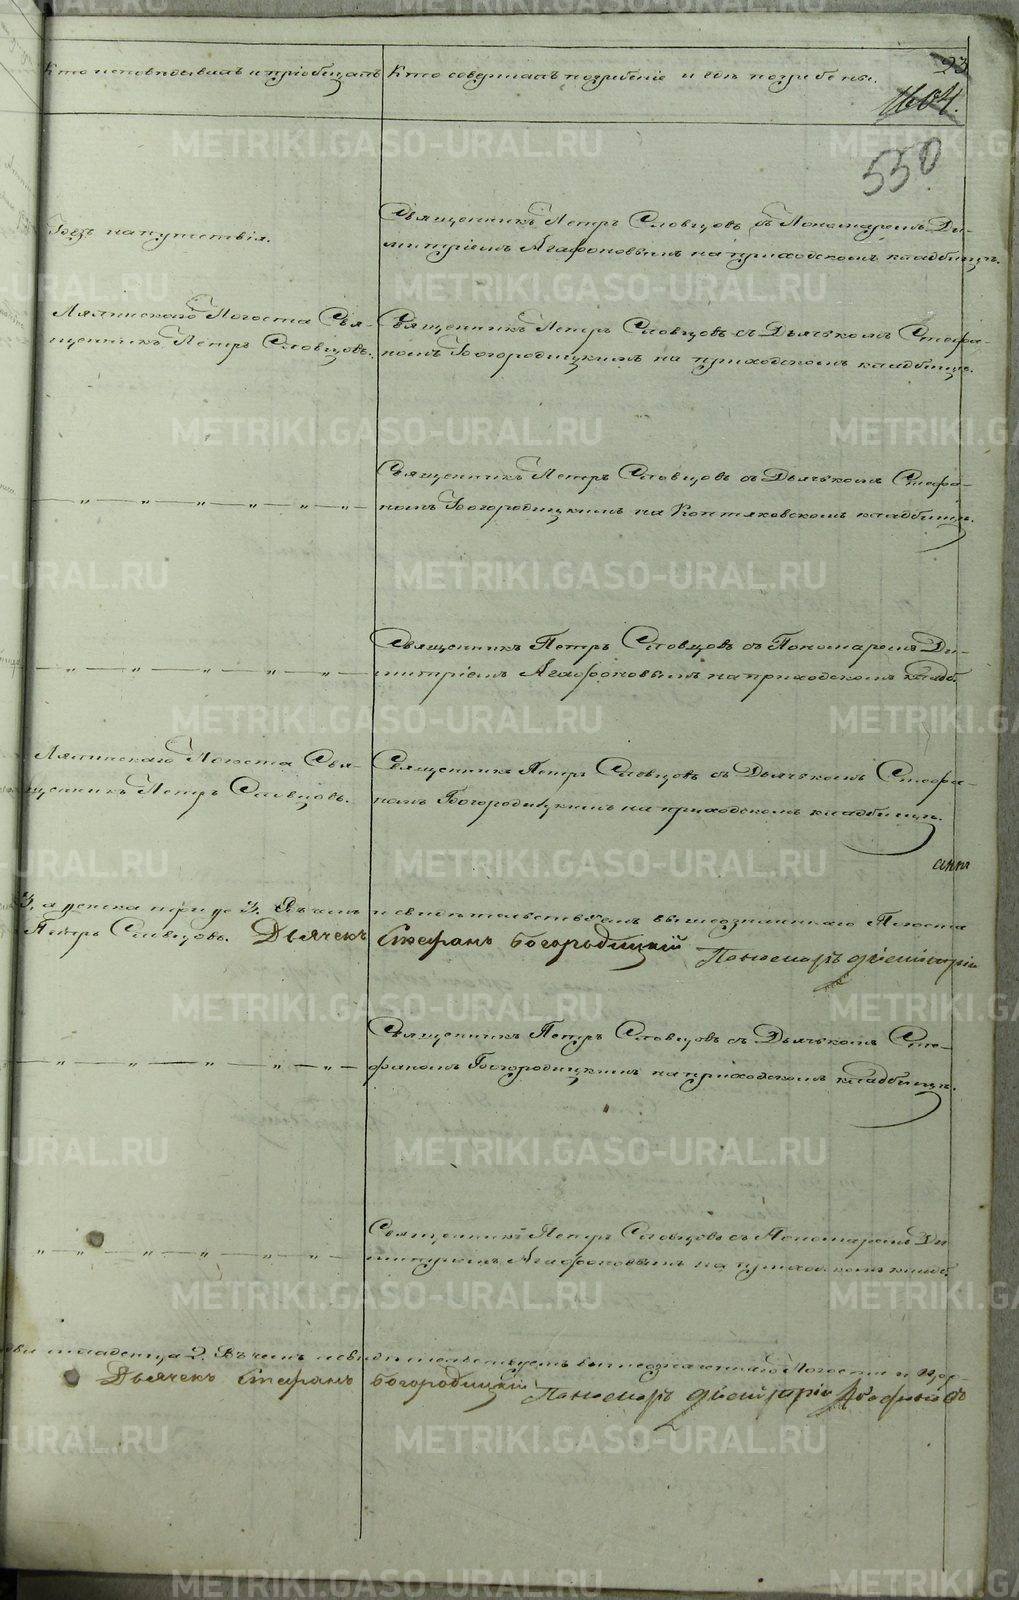 Кто исповѣдывалъ и пріобщалъ
Кто совершалъ погребеніе и гдѣ погребены.
23
1604.
550
Безъ напутствія.
Священникъ Петръ Словцовъ съ Пономаремъ Ди-
митріемъ Агафоновымъ на приходскомъ кладбищѣ.
Лялинскаго Погоста Свя-
щенникъ Петръ Словцовъ.
Священникъ Петръ Словцовъ съ Дьячкомъ Стефа-
номъ Богородицкимъ на приходскомъ кладбищѣ.
— „ — „ — „ — „ — „ —
Священникъ Петръ Словцовъ съ Дьячкомъ Стефа-
номъ Богородицкимъ на Коптяковскомъ кладбищѣ.
— „ — „ — „ — „ — „ —
Священникъ Петръ Словцовъ съ Пономаремъ Ди-
митріемъ Агафоновымъ на приходскомъ кладб.
Лялинскаго Погоста Свя-
щенникъ Петръ Словцовъ.
Священникъ Петръ Словцовъ съ Дьячкомъ Стефа-
номъ Богородицкимъ на приходскомъ кладбищѣ.
3, а женска пола 3. Въ чемъ и свидѣтельствуемъ вышеозначеннаго Погоста
Петръ Словцовъ. Дьячекъ Стефанъ Богородицкій Пономарь Димитрій
— „ — „ — „ — „ — „ —
Священникъ Петръ Словцовъ съ Дьячкомъ Сте-
фаномъ Богородицкимъ на приходскомъ кладбищѣ.
„ — „ — „ — „ — „ — „ —
Священникъ Петръ Словцовъ съ Пономаремъ Ди
митріемъ Агафоновымъ на приходскомъ кладб.
младенца 2. Въ чемъ и свидѣтельствуемъ вышеозначеннаго Погоста
Дьячекъ Стефанъ Богородицкій Пономарь Димитрій Агафоновъ
METRIKI.GASO-URAL.RU